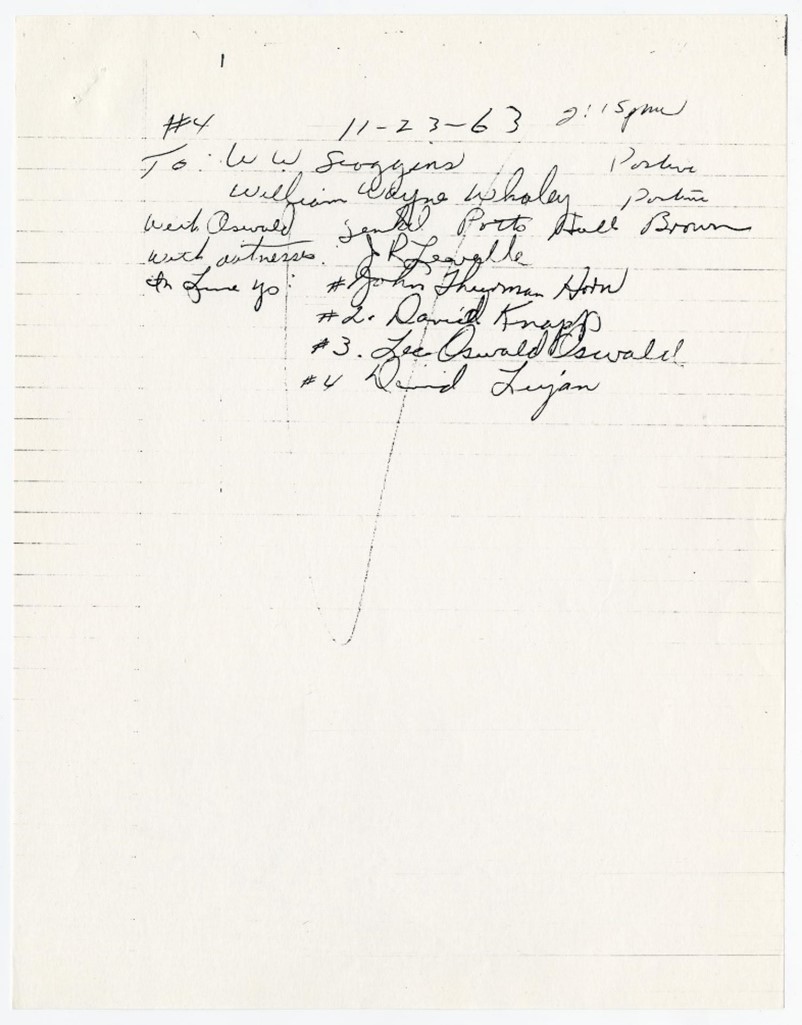 #4 11-23-63 2:15pm
To: W W Scoggins Positive
William Wayne Whaley positive
With Oswald Sentel Potts Hall Brown
with witnesses. J R Leavelle
In Line up: #1 John Thurman Horn
#2. David Knapp
#3. Lee Oswald Oswald
#4 Daniel Lujan